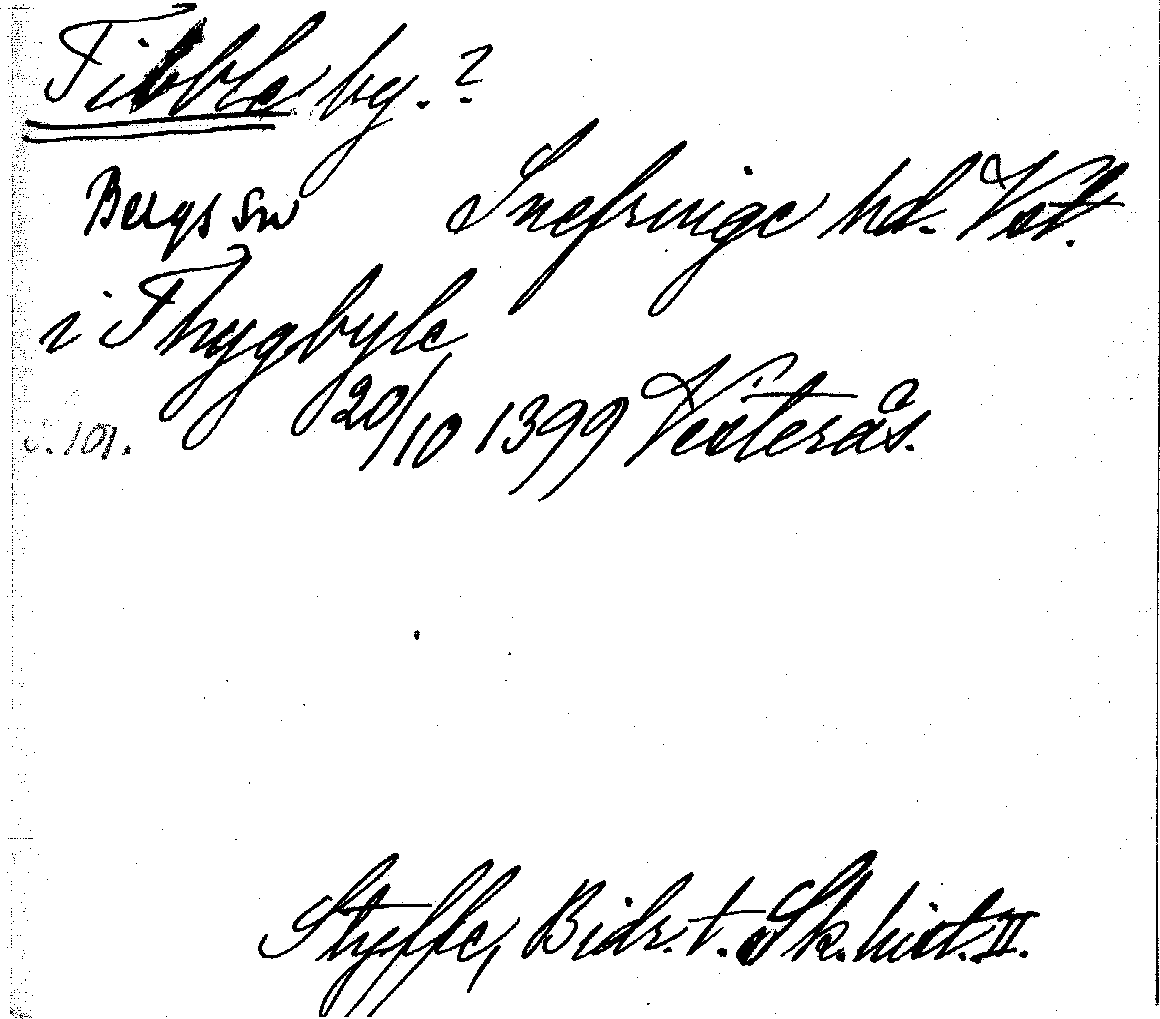 Tibble by. ?
Bergs sn Snefringe hd. Vstl.
i Thygbyle
S. 101. 20/10 1399 Västerås.
Styffe, Bidr. t. Sk. hist. II.